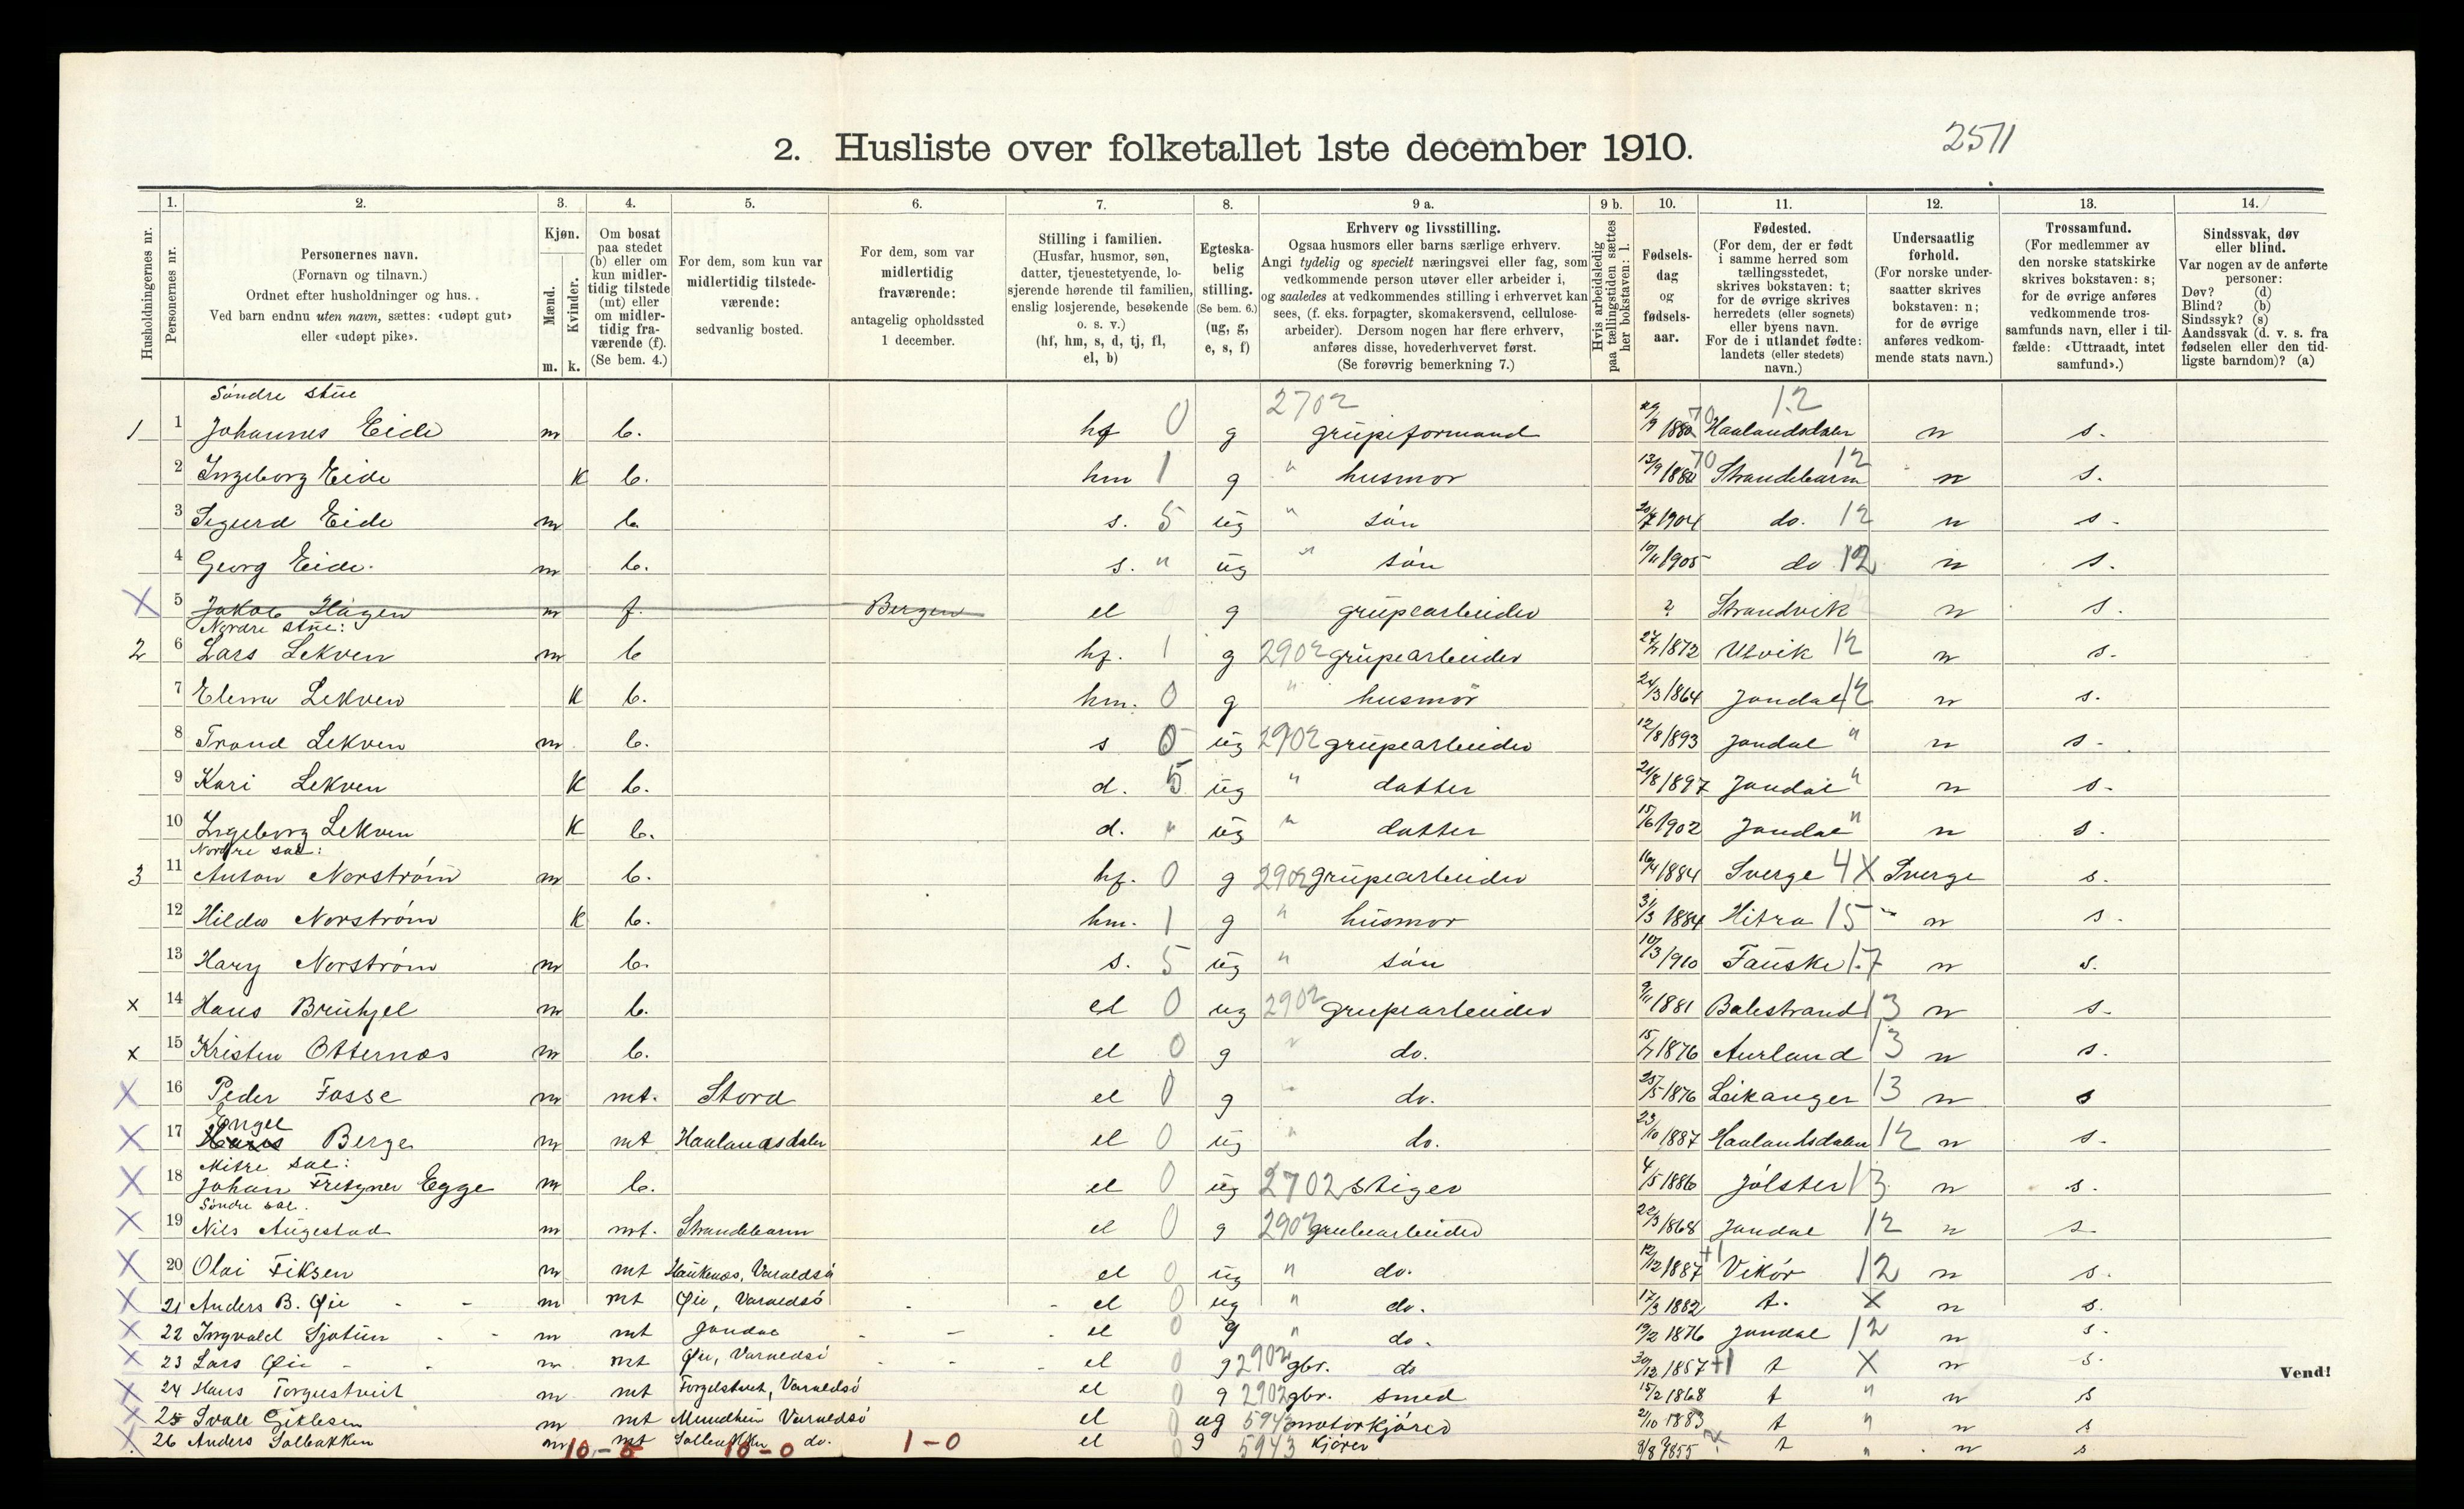 2. Husliste over folketallet 1ste december 1910. 2511
1. 2. 3. 4. 5. 6. 7. 8. 9 a. 9 b. 10. 11. 12. 13. 14.
Husholdningernes nr.
Personernes nr.
Personernes navn.
(Fornavn og tilnavn.)
Ordnet efter husholdninger og hus.
Ved barn endnu uten navn, sættes: «udøpt gut»
eller «udøpt pike».
Kjøn.
Mænd.
Kvinder.
m. k.
Om bosat
paa stedet
(b) eller om
kun midler-
tidig tilstede
(mt) eller
om midler-
tidig fra-
værende (f).
(Se bem. 4.)
For dem, som kun var
midlertidig tilstede-
værende:
sedvanlig bosted.
For dem, som var
midlertidig
fraværende:
antagelig opholdssted
1 december.
Stilling i familien.
(Husfar, husmor, søn,
datter, tjenestetyende, lo-
sjerende hørende til familien,
enslig losjerende, besøkende
o. s. v.)
(hf, hm, s, d, tj, fl,
el, b)
Egteska-
belig
stilling.
(Se bem. 6.)
(ug, g,
e, s, f)
Erhverv og livsstilling.
Ogsaa husmors eller barns særlige erhverv.
Angi tydelig og specielt næringsvei eller fag, som
vedkommende person utøver eller arbeider i,
og saaledes at vedkommendes stilling i erhvervet kan
sees, (f. eks. forpagter, skomakersvend, cellulose-
arbeider). Dersom nogen har flere erhverv,
anføres disse, hovederhvervet først.
(Se forøvrig bemerkning 7.)
Hvis arbeidsledig
paa tællingstiden sættes
her bokstaven: l.
Fødsels-
dag
og
fødsels-
aar.
Fødested.
(For dem, der er født
i samme herred som
tællingsstedet,
skrives bokstaven: t;
for de øvrige skrives
herredets (eller sognets)
eller byens navn.
For de i utlandet fødte:
landets (eller stedets)
navn.)
Undersaatlig
forhold.
(For norske under-
saatter skrives
bokstaven: n;
for de øvrige
anføres vedkom-
mende stats navn.)
Trossamfund.
(For medlemmer av
den norske statskirke
skrives bokstaven: s;
for de øvrige anføres
vedkommende tros-
samfunds navn, eller i til-
fælde: «Uttraadt, intet
samfund».)
Sindssvak, døv
eller blind.
Var nogen av de anførte
personer:
Døv? (d)
Blind? (b)
Sindssyk? (s)
Aandssvak (d. v. s. fra
fødselen eller den tid-
ligste barndom)? (a)
Søndre stue 2702 12
1 1 Johannes Eide m b. hf 0 g grupeformand Haalandsdalen n s.
2 Ingeborg Eide k b. hm 1 g " husmor 13/9 Strandebarm 12 n s.
3 Sigurd Eide m b. s. 5 ug " søn 20/7 1904 do. 12 n s.
4 Georg Eide. m b. s. " ug " søn 10/11 1905 do 12 n s.
X 5 Jakob Hagen m f. Bergen el g grupearbeider ? Strandvik n s.
Nordre stue:
2 6 Lars Lekven m b hf. 1 g 2902 grupearbeider 27/7 1872 Ulvik 12 n s.
7 Elena Lekven k b. hm. 0 g " husmor 24/3 1864 Jondal 12 n s.
8 Trond Lekven m b. s 0 ug 2902 grupearbeider 12/8 1893 Jondal " n s.
9 Kari Lekven k b. d. 5 ug " datter 21/8 1897 Jondal " n s.
10 Ingeborg Lekven k b. d. " ug " datter 15/6 1902 Jondal " n s.
Nordre sal:
3 11 Anton Norstrøm m b. hf. 0 g 2902 grupearbeider 16/4 1884 Sverge 4 X Sverge s.
12 Hilda Norstrøm k b. hm. 1 g " husmor 31/3 1884 Hitra 15 n s.
13 Hary Norstrøm m b. s. 5 ug " søn 10/3 1910 Fauske 17 n s.
x 14 Hans Bruhjel m b. el 0 ug 2902 grupearbeider 9/11 1881 Balestrand 13 n s.
x 15 Kristen Otternæs m b. el 0 g " do. 15/7 1876 Aurland 13 n s.
X 16 Peder Fosse m mt. Stord el 0 g " do. 25/5 1876 Leikanger 13 n s
Engel
X 17 Hans Berge m mt Haalandsdalen el 0 ug " do. 23/10 1887 Haalandsdalen 12 n s.
Mitre sal:
X 18 Johan Egge m b. el 0 ug 2702 stiger 4/5 1886 Jølster 13 n s.
Søndre sal.
X 19 Nils Augestad m mt. Strandebarm el 0 g 2902 grubearbeider 22/3 1868 Jondal 12 n s.
X 20 Olai Fiksen m mt Haukenæs, Varaldsø el 0 ug " do. 12/12 1887 +1 Vikør 12 n s.
X 21 Anders B. Øie m mt Øie, Varaldsø el 0 ug " do. 17/3 1882 t. X n s.
X 22 Ingvald Sjotun m mt Jondal el 0 g " do. 19/2 1876 Jondal 12 n s.
X 23 Lars Øie m mt Øie, Varaldsø el 0 g 2902 gbr. do 30/12 1857 +1 t X n s. Vend!
X 24 Hans Torgustveit m mt Varaldsø el 0 g 2902 gbr. smed 15/2 1868 t " n s
X 25 Svale Giklesen m mt Mundheim Varaldsø el 0 ug 5943 motorkjører 2/10 1883 t " n s
X 26 Anders Solbakken m mt Solbakken do. el 0 g 5943 kjører 8/8 1855 t " n s
10-5 10-0 1-0